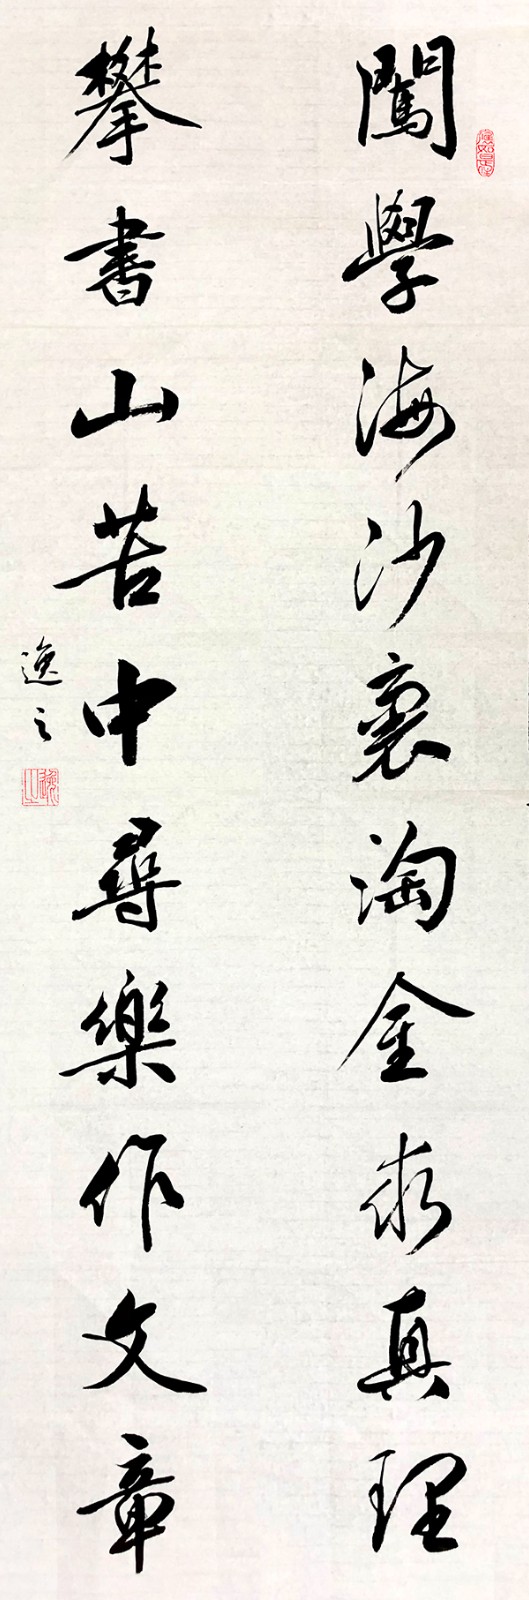 闖學海沙裏淘金求真理
攀書山苦中尋樂作文章
逸之